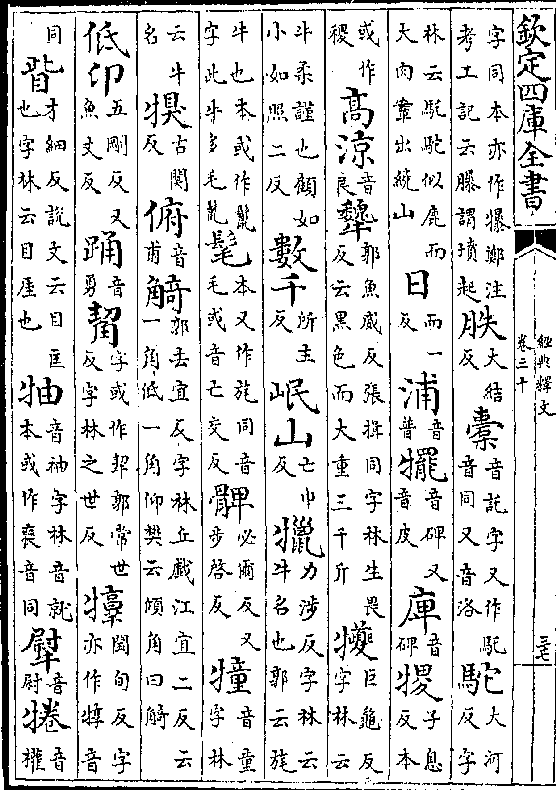 欽定四庫全書
經典釋文
卷三十
三七
字同本亦作犦鄭注考工記云𦢊謂墳起胅大結反橐音託字又作馲音同又音洛駝大河反字
林云馲駝似鹿而大肉鞌出繞山日而一反浦音普犤音碑又音皮庳音碑㹎子息反本
或作稷高涼音良犩郭魚威反張揖同字林生畏反云黒色而大重三千斤犪巨龜反字林云
牛柔謹也顧如小如照二反數千所主反岷山亡巾反犣力涉反字林云牛名也郭云旄
牛也本或作氂字此牛多毛氂髦本又作旄同音毛或音亡交反髀必爾反又步啓反犝音童字林
云牛名犑古闃反俯音甫觭郭去宜反字林丘戲江宜二反云一角低一角仰樊云傾角曰觭
低卬五剛反又魚丈反踊音勇觢字或作挈郭常世反字林之世反閏旬反字亦作犉音
同眥才細反說文云目匡也字林云目厓也牰音袖字林音就本或作褎音同犚音尉犈音權